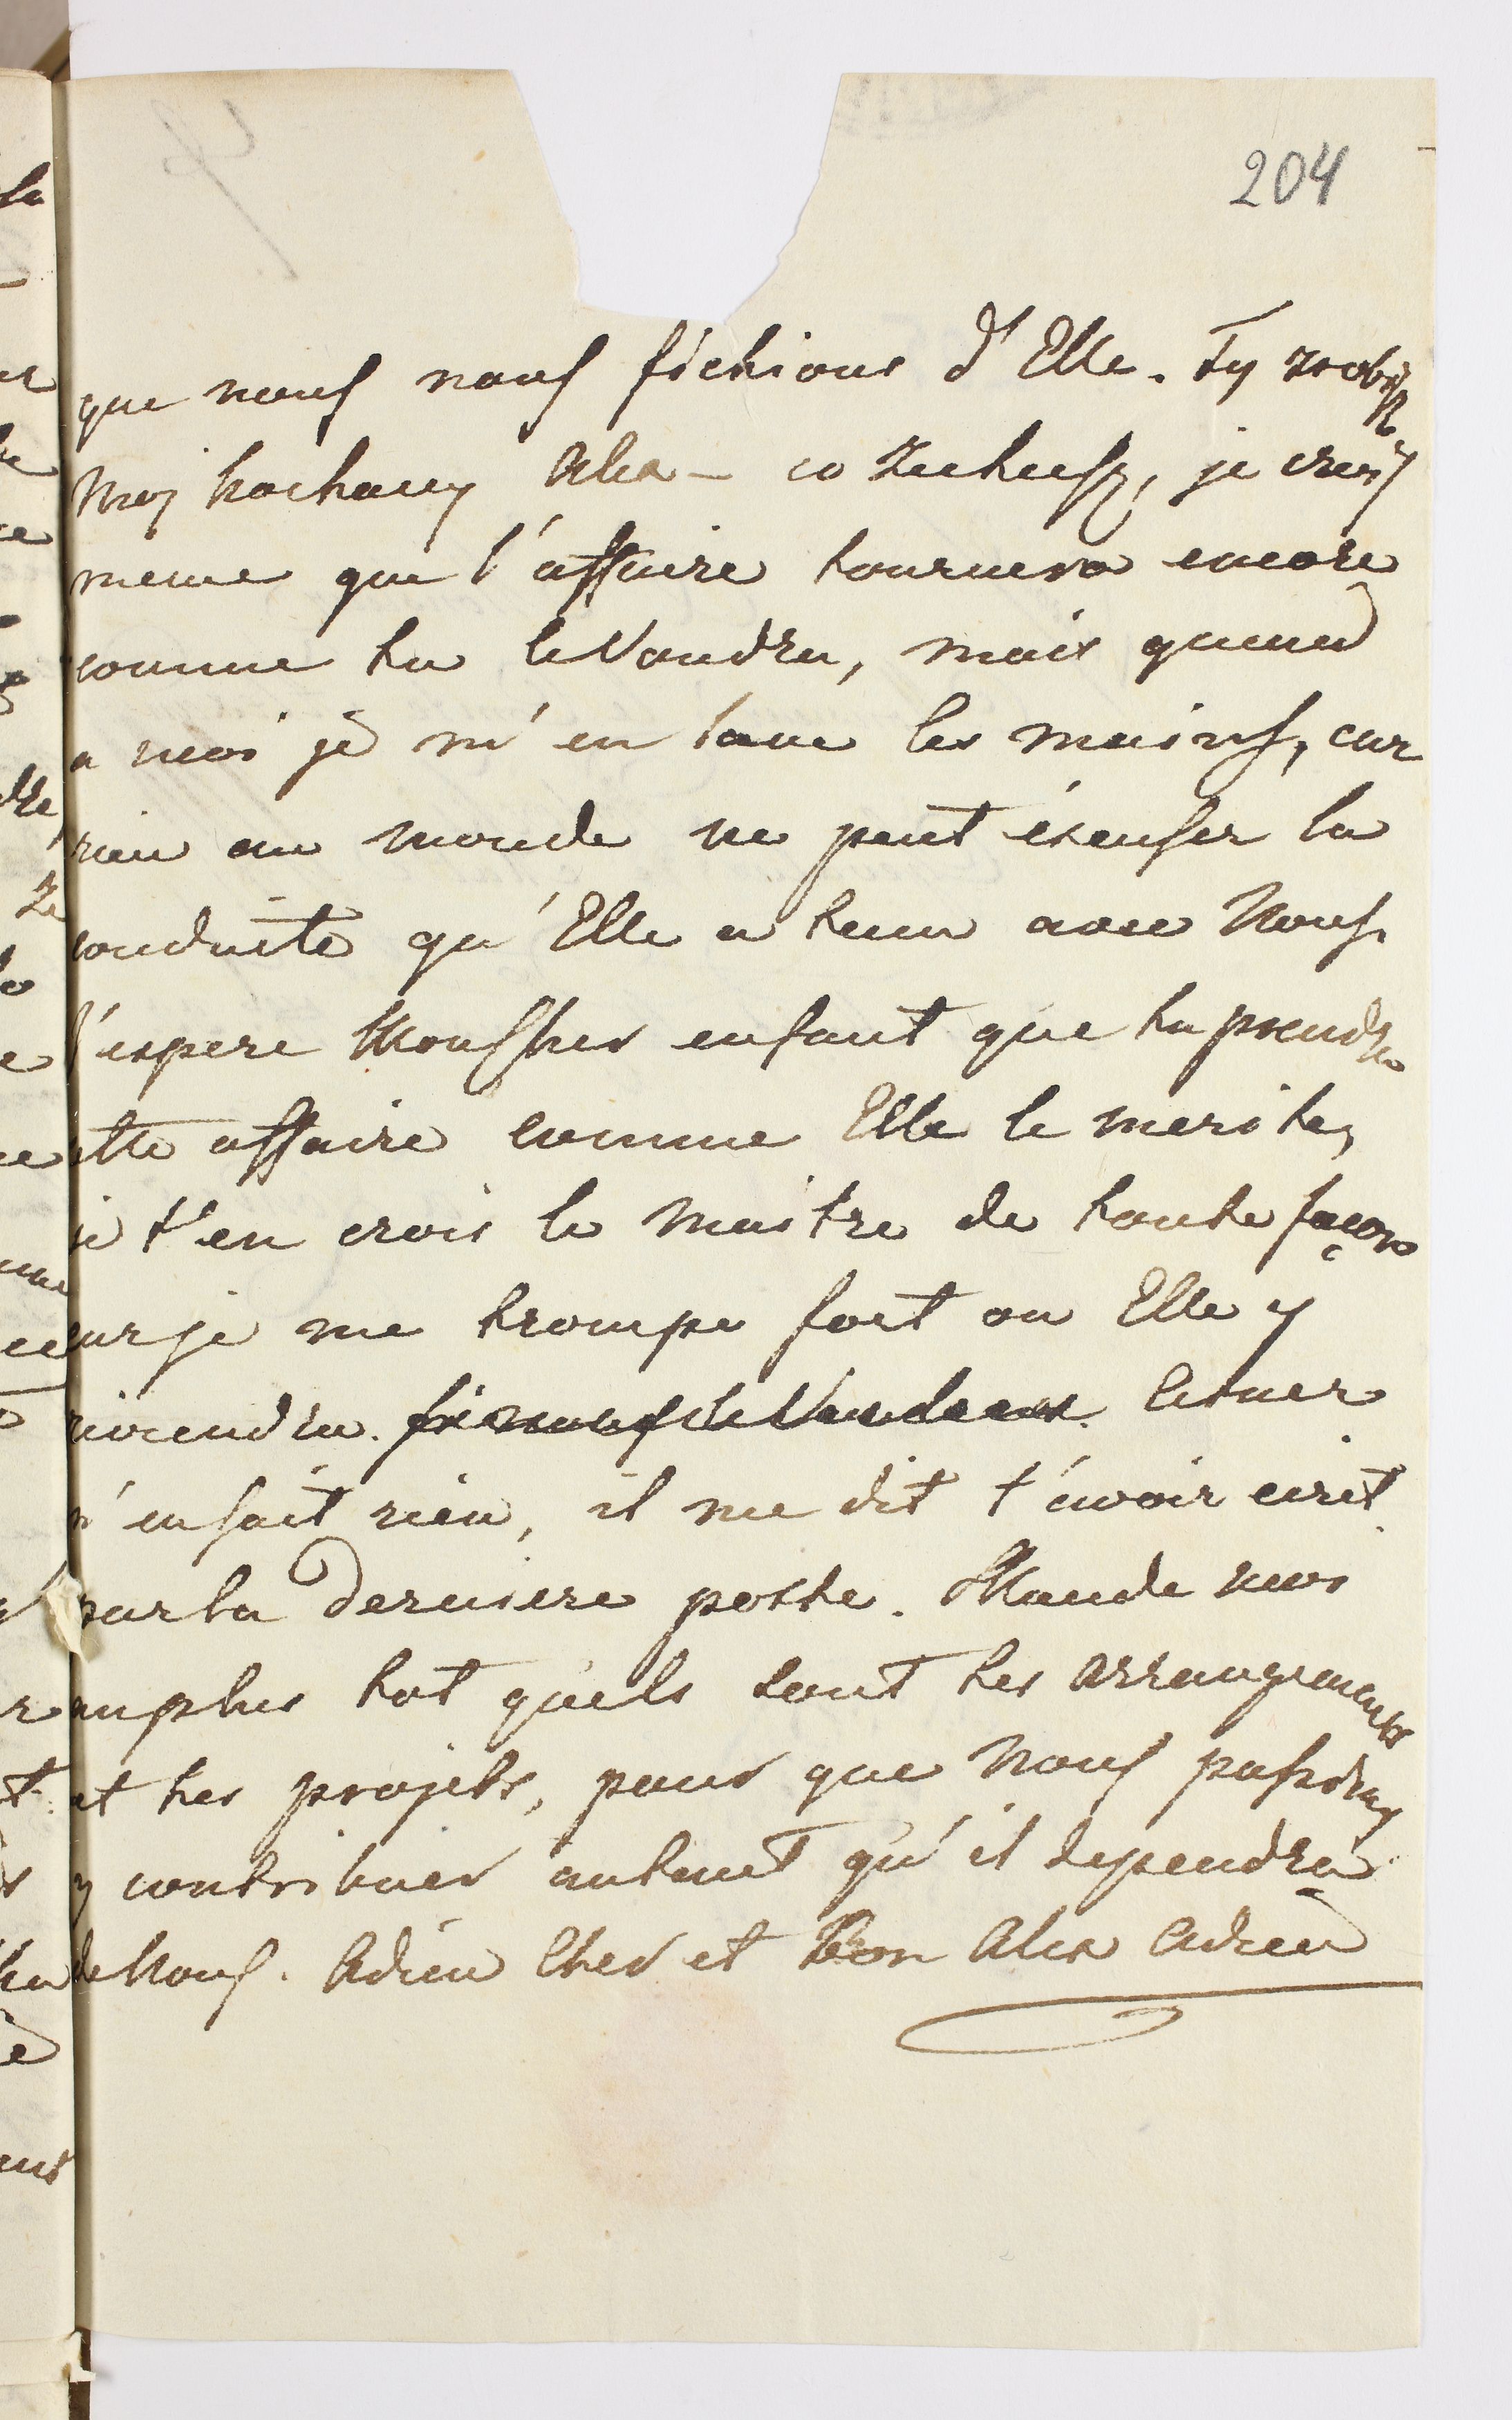 204
que nous nous fichions d'Elle. Ty zrobisz
moj kochany Alex – co zechcesz, je crois
meme que l'affaire tournera encore
comme tu le Voudra, mais quend
a moi je m'en lave les mains, car
rien au monde ne peut éxcuser la
conduite qu'Elle a tenu avec Nous.
J'espere Mon Cher enfant que tu prendra
cette affaire comme Elle le merite,
je t'en crois le maitre de toute façon
car je me trompe fort ou Elle y
reviendra. si nous le Voudrons. Cesner
n'en fait rien, il me dit t'avoir ecrit
par la derniere poste. Mande moi
au plus tot quels sont tes arrangements
et tes projets, pour que Nous puissions
y contribuer autant qu'il dependra
de Nous. Adieu Cher et Bon Alex Adieu